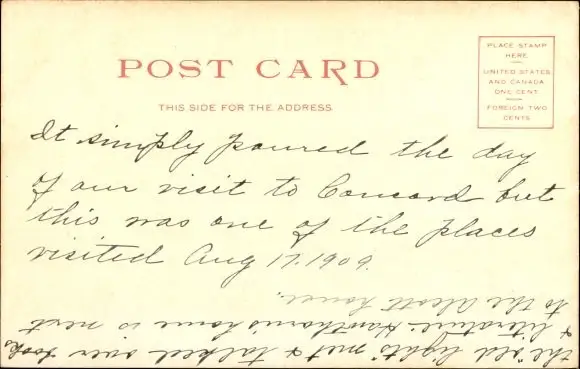 POST CARD
THIS SIDE FOR THE ADDRESS.
PLACE STAMP
HERE
UNITED STATES
AND CANADA
ONE CENT
FOREIGN TWO
CENTS
It simply poured the day
of our visit to Concord but
this was one of the places
visited Aug 17. 1909.
the "old lights" met & talked over books
& literature. Hawthorn's home is next
to the Alcott house.